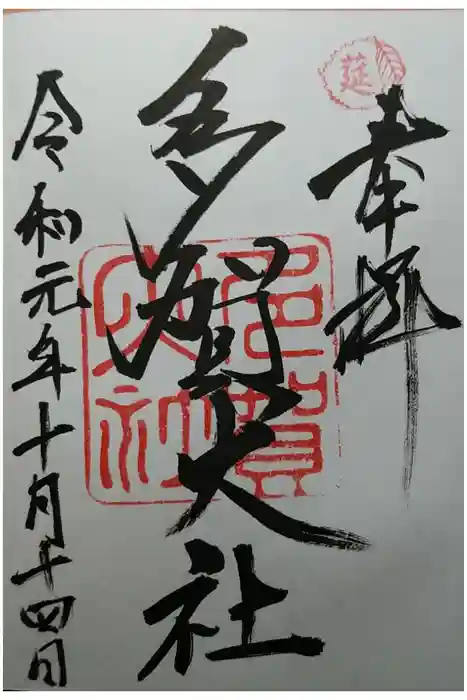 奉拝
莚
多賀大社
多賀大社
令和元年十月十四日